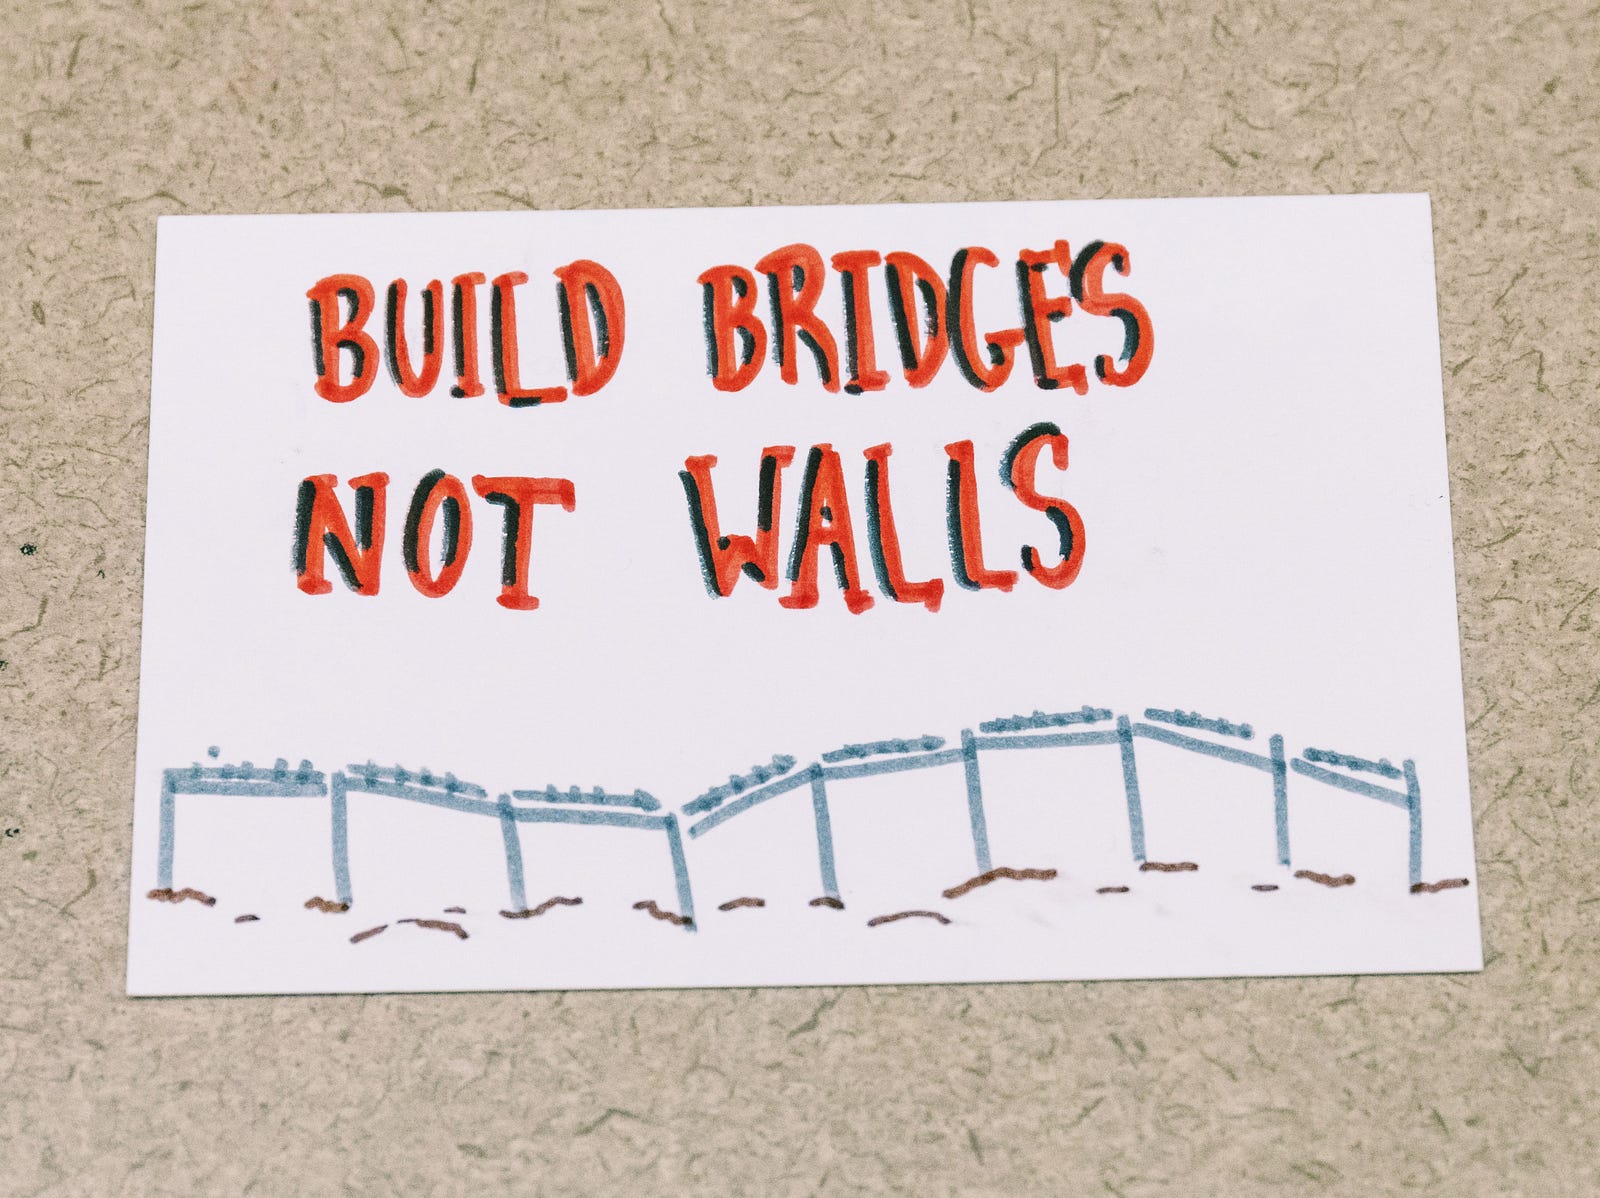 BUILD BRIDGES
NOT WALLS